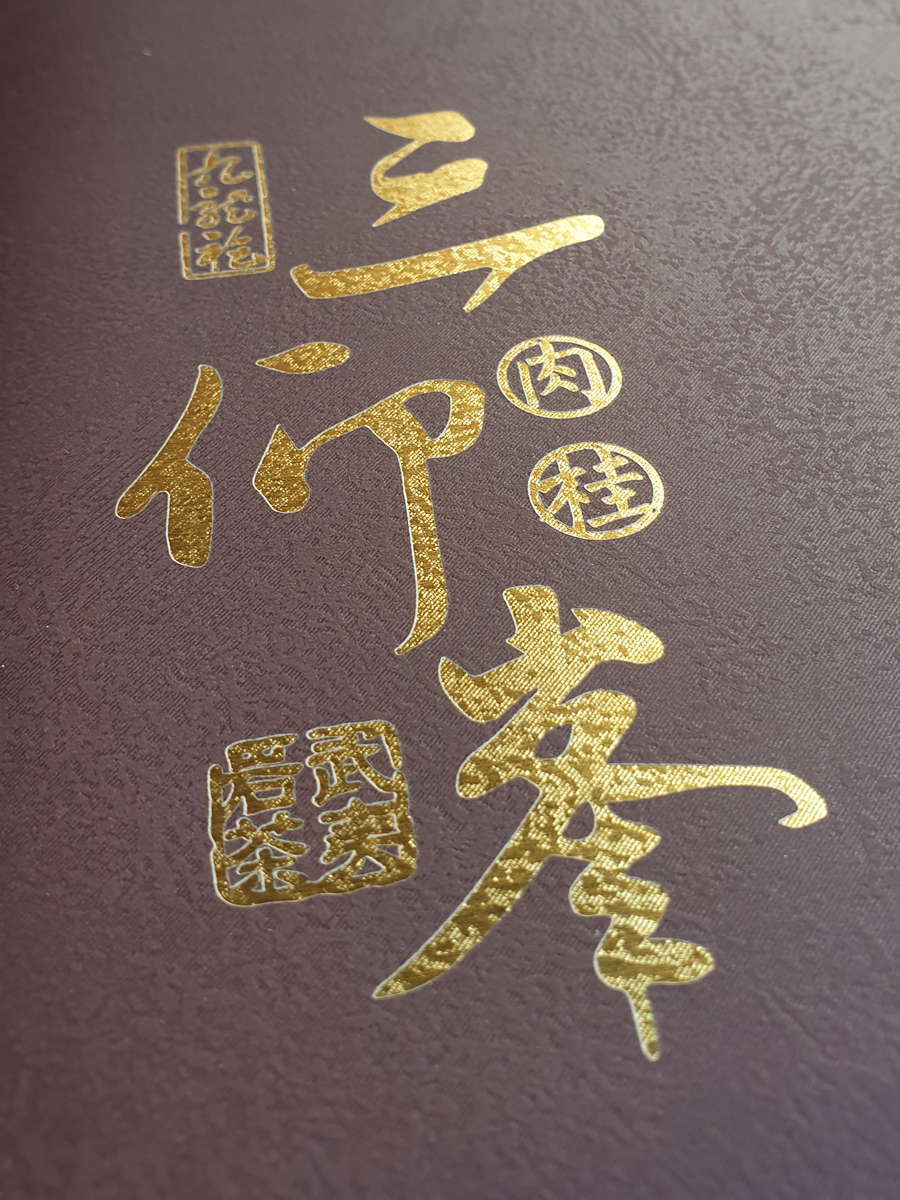 三仰峯
肉桂
九龍袍
武夷
岩茶